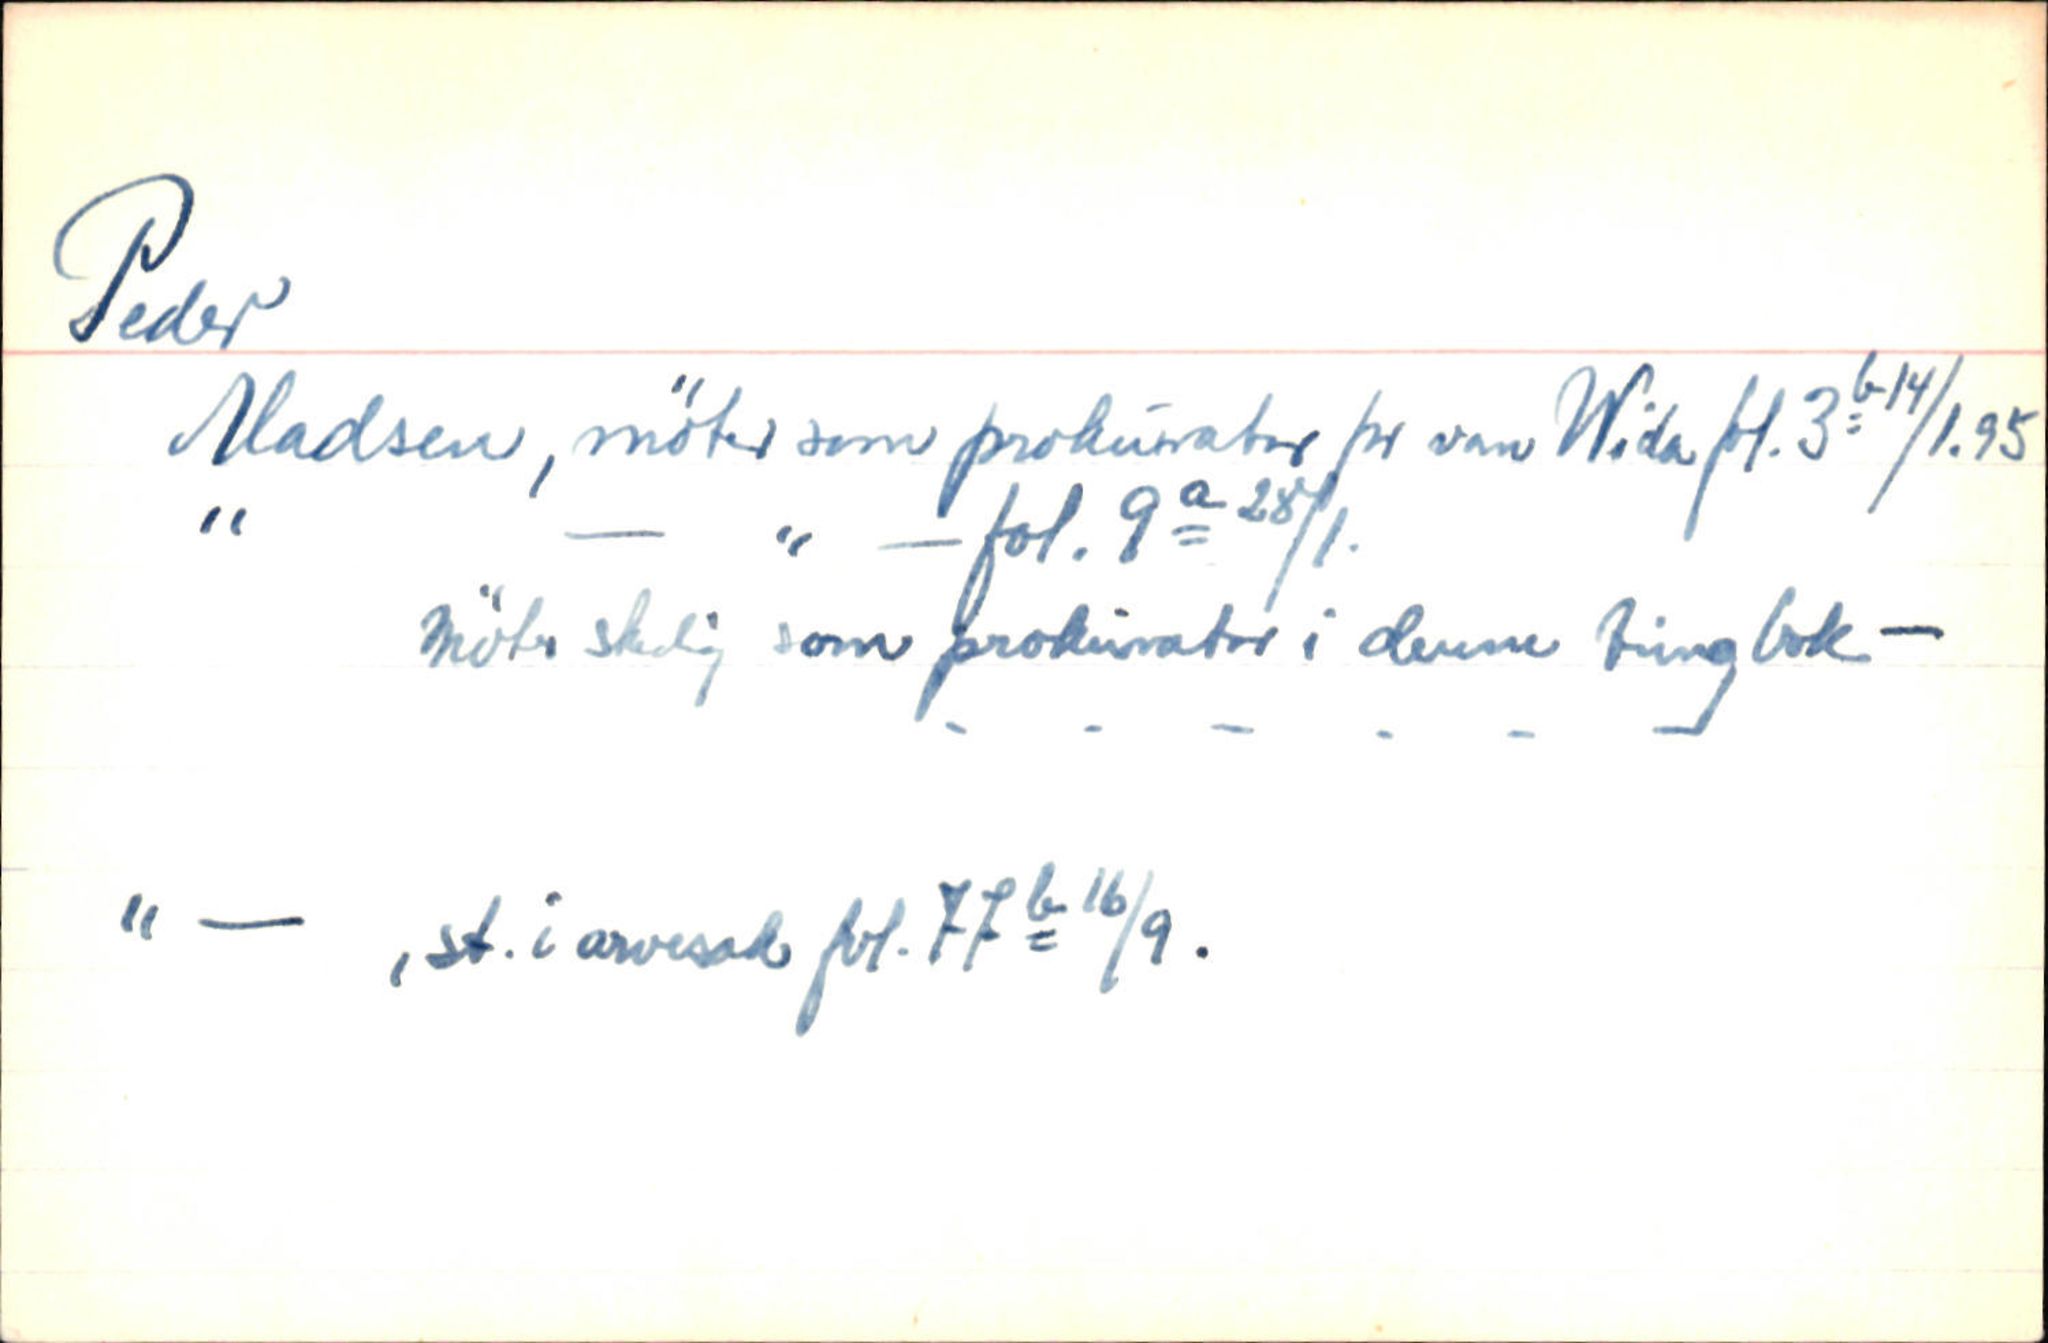 Peder
Madsen, möter som prokurator for van Wida fol. 3b 14/1.95
" — " — fol. 9a 28/1.
Möter stadig som prokurator i denne tingbok —
- - - - - -
" — , st. i arvesak fol. 77b 16/9.